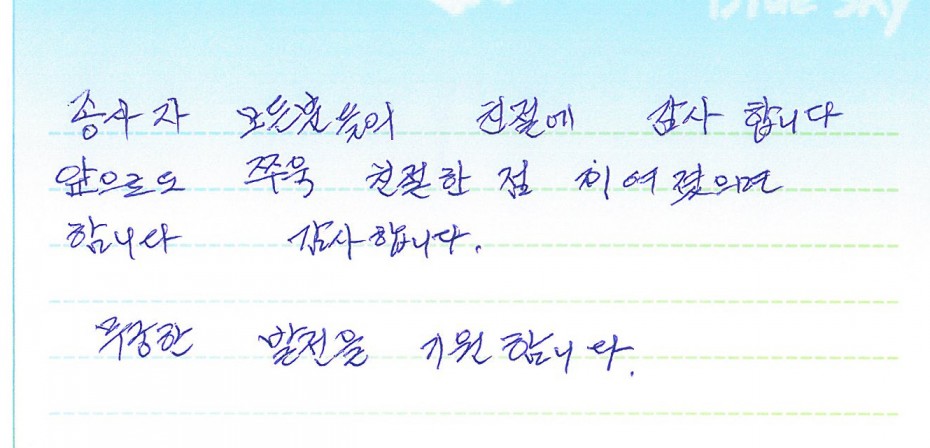 Blue Sky
종사자 모든분들의 친절에 감사 합니다
앞으로도 쭈욱 친절한 점 지여졌으면
합니다 감사합니다.
무궁한 발전을 기원 합니다.